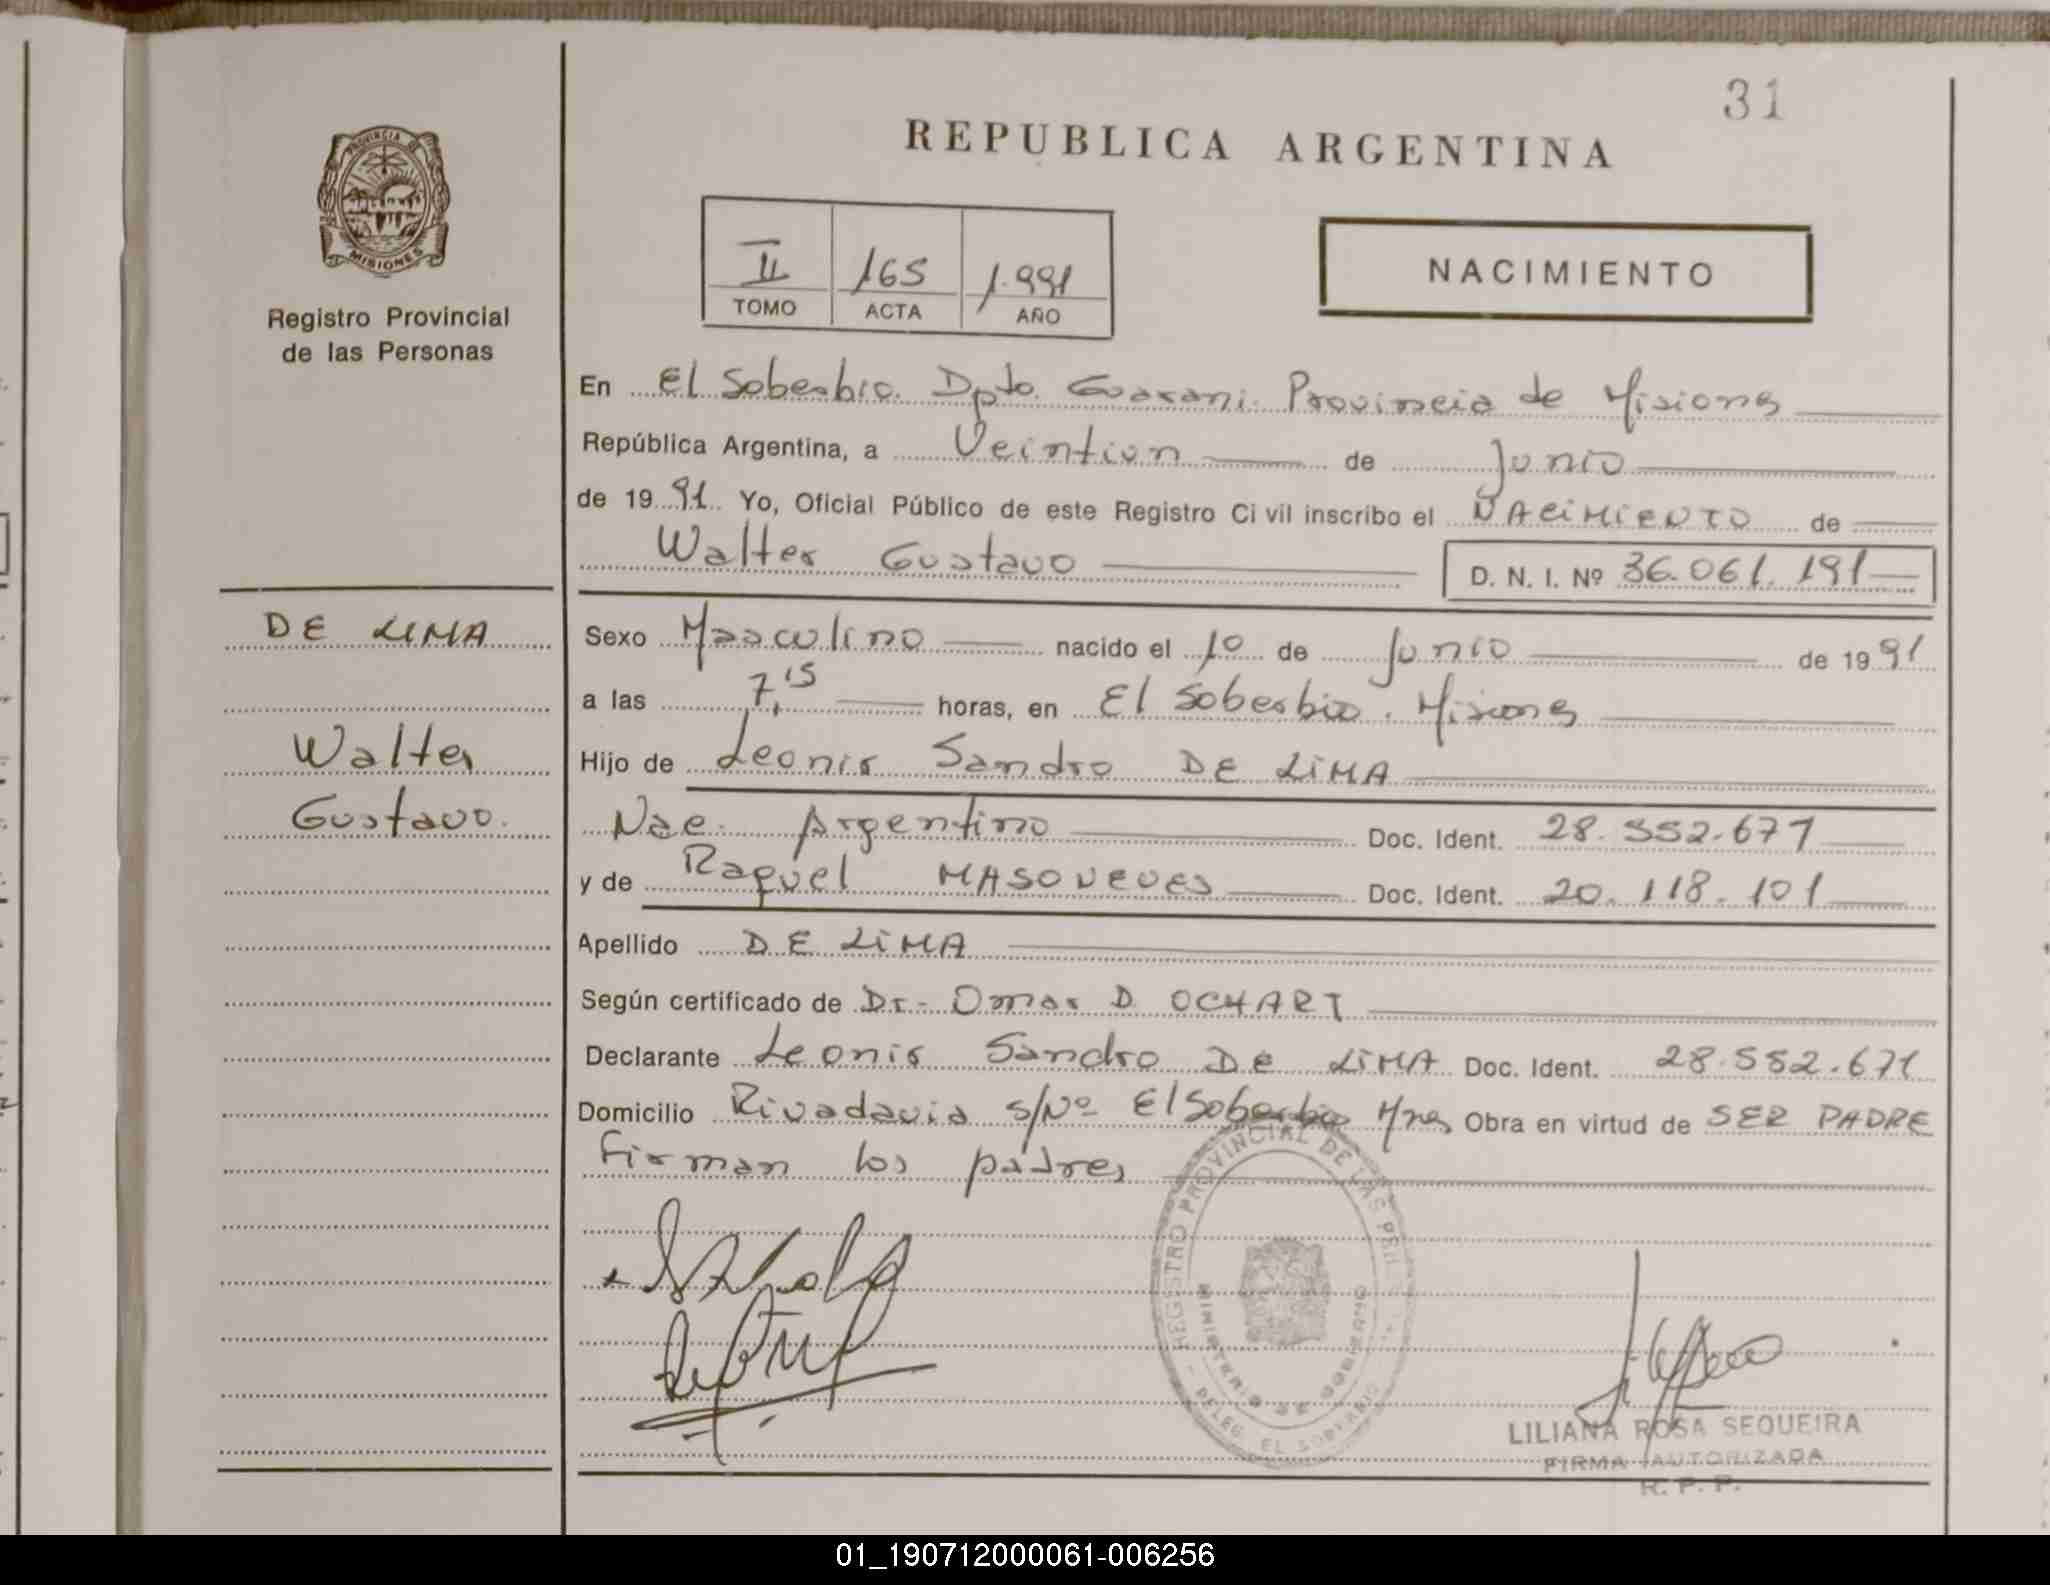 31
REPUBLICA ARGENTINA
PROVINCIA DE
MISIONES
Registro Provincial
de las Personas
II 165 1.991
TOMO ACTA AÑO
NACIMIENTO
En El Soberbio. Dpto. Guarani. Provincia de Misiones
República Argentina, a Veintiun de Junio
de 19 91 Yo, Oficial Público de este Registro Ci vil inscribo el NACIMIENTO de
Walter Gustavo D. N. I. Nº 36.061.191
DE LIMA
Walter
Gustavo.
Sexo Masculino nacido el 10 de Junio de 19 91
a las 7,15 horas, en El Soberbio. Misiones
Hijo de Leonir Sandro DE LIMA
Nac. Argentino Doc. Ident. 28.552.671
y de Raquel MASONEVES Doc. Ident. 20.118.101
Apellido DE LIMA
Según certificado de Dr.- Omar D. OCHART
Declarante Leonir Sandro DE LIMA Doc. Ident. 28.552.671
Domicilio Rivadavia s/Nº El Soberbio Mnes Obra en virtud de SER PADRE
Firman los padres
REGISTRO PROVINCIAL DE LAS PERS
MINISTERIO DE GOBIERNO
DELEG. EL SOBERBIO
LILIANA ROSA SEQUEIRA
FIRMA AUTORIZADA
R. P. P.
01_190712000061-006256